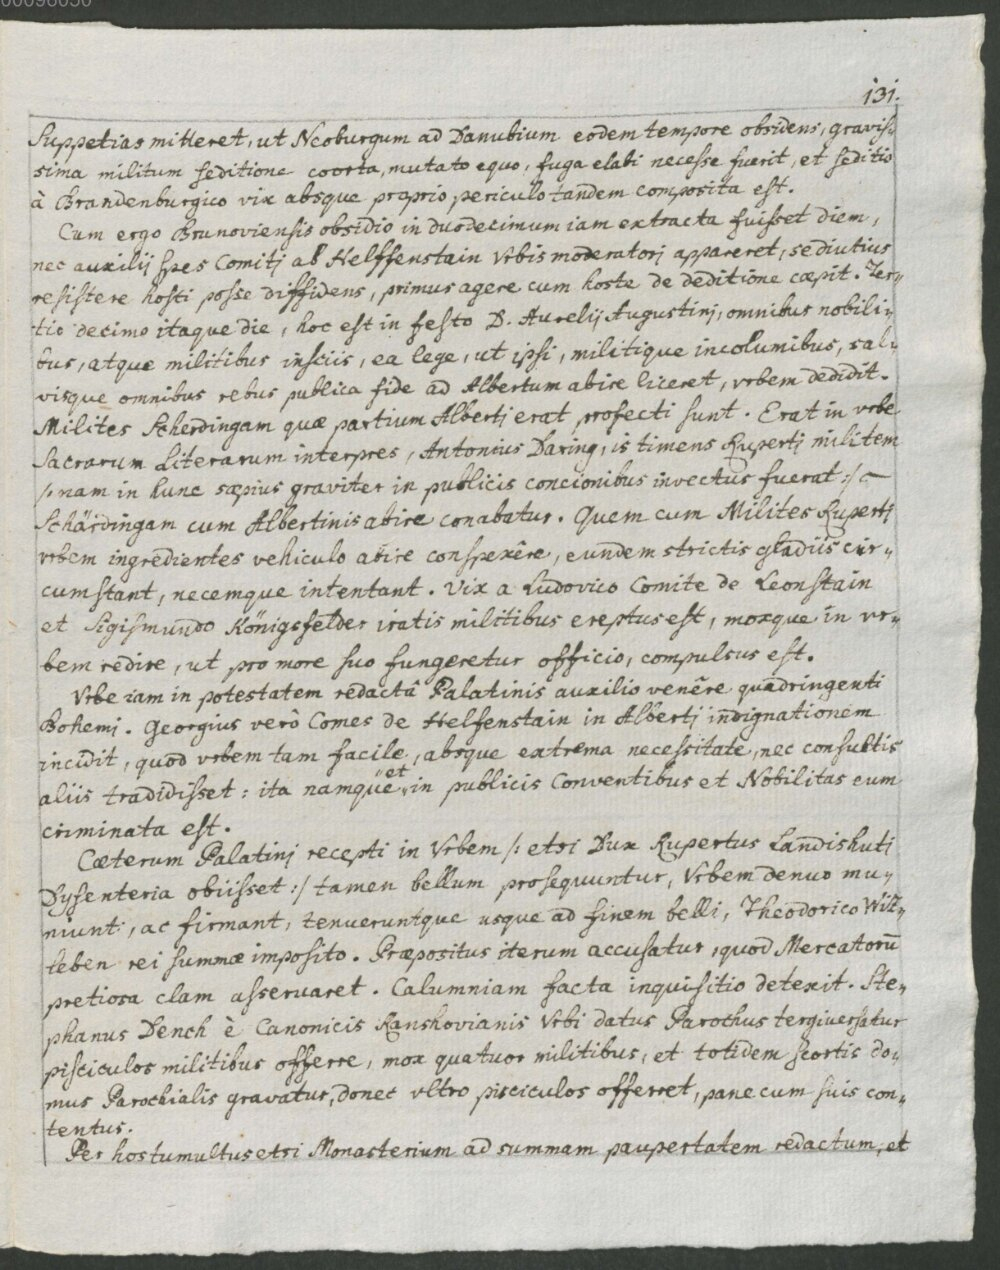 00096050
131.
Suppetias mitteret, ut Neoburgum ad Danubium eodem tempore obsidens, gravis-
sima militum seditione coorta, mutato equo, fuga elabi necesse fuerit, et seditio
à Brandenburgico vix absque proprio periculo tandem composita est.
Cum ergo Brunoviensis obsidio in duodecimum iam extracta fuisset diem,
nec auxilij spes Comitj ab Helffenstain Vrbis moderatorj appareret, se diutius
resistere hosti posse diffidens, primus agere cum hoste de deditione cœpit. Ter„
tio decimo itaque die, hoc est in festo D. Aurelij Augustinj, omnibus nobili„
bus, atque militibus insciis, ea lege, ut ipsi, militique incolumibus, sal„
visque omnibus rebus publica fide ad Albertum abire liceret, vrbem dedidit.
Milites Scherdingam quæ partium Albertj erat profecti sunt. Erat in vrbe
Sacrarum Literarum interpres, Antonius Daring, is timens Rupertj militem
/: nam in hunc sæpius graviter in publicis concionibus invectus fuerat :/
Schärdingam cum Albertinis abire conabatur. Quem cum Milites Rupertj
vrbem ingredientes vehiculo abire conspexêre, eundem strictis gladiis cir„
cumstant, necemque intentant. Vix a Ludovico Comite de Leonstain
et Sigismundo Königsfelder iratis militibus ereptus est, moxque in vr„
bem redire, ut pro more suo fungeretur officio, compulsus est.
Vrbe iam in potestatem redactâ Palatinis auxilio venêre quadringenti
Bohemj. Georgius verò Comes de Helfenstain in Albertj indignationem
incidit, quod vrbem tam facile, absque extrema necessitate, nec consultis
aliis tradidisset: ita namque et in publicis Conventibus et Nobilitas eum
criminata est.
Cæterum Palatinj recepti in Vrbem /: etsi Dux Rupertus Landishuti
Dysenteria obiisset :/ tamen bellum prosequuntur, Vrbem denuo mu„
niunt, ac firmant, tenueruntque usque ad finem belli, Theodorico Wit„
teben rei summæ imposito. Præpositus iterum accusatur, quod Mercatorū
pretiosa clam asservaret. Calumniam facta inquisitio detexit. Ste„
phanus Dench è Canonicis Ranshovianis Vrbi datus Parochus tergiversatur
pisciculos militibus offerre, mox quatuor militibus, et totidem scortis do„
mus Parochialis gravatur, donec vltro pisciculos offerret, pane cum suis con„
tentus.
Per hos tumultus etsi Monasterium ad summam paupertatem redactum, et